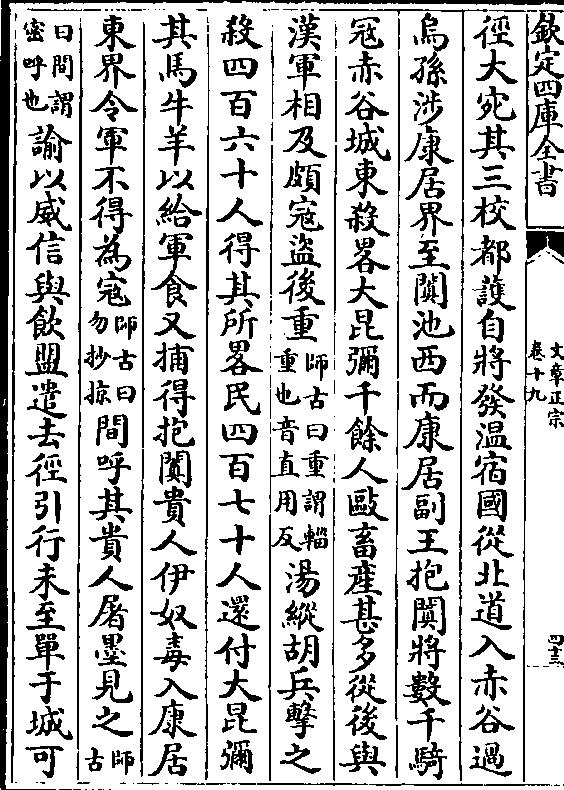 欽定四庫全書
文章正宗
卷十九
四十三
徑大宛其三校都護自將發温宿國從北道入赤谷過
烏孫涉康居界至闐池西而康居副王抱闐將數千騎
冦赤谷城東殺畧大昆彌千餘人敺畜産甚多從後與
漢軍相及頗寇盜後重師古曰重謂輜重也音直用反湯縱胡兵擊之
殺四百六十人得其所畧民四百七十人還付大昆彌
其馬牛羊以給軍食又捕得抱闐貴人伊奴毒入康居
東界令軍不得為寇師古曰勿抄掠間呼其貴人屠墨見之師古
曰間謂密呼也諭以威信與飲盟遣去徑引行未至單于城可